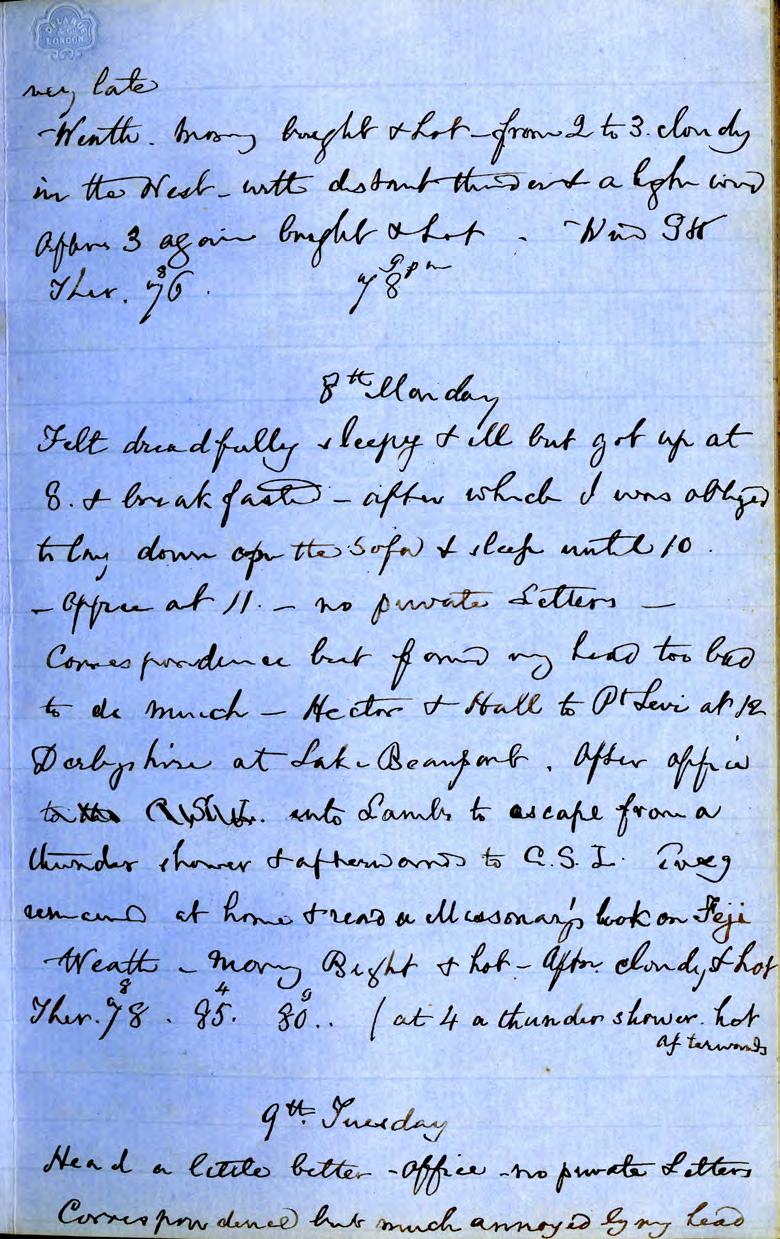 DELARUE
& Co
LONDON
very late
Weath. Morng bright & hot – from 2 to 3. cloudy
in the West – with distant thunder & a light wind
Aftern 3 again bright & hot. – Wind SW
8 9 pm
Ther. 76. 78
8th Monday
Felt dreadfully sleepy & ill but got up at
8. & breakfasted – after which I was obliged
to lay down on the Sofa & sleep until 10.
– Office at 11. – no private Letters –
Correspondence but found my head too bad
to do much – Hector & Hall to Pt Levi at 12
Derbyshire at Lake Beauport. After office
into Lambs to escape from a
thunder shower & afterwards to C.S.I. Eveg
remained at home & read a Missonary's book on Feji
Weath – Morng Bright & hot – Aftn. cloudy & hot
8 4 9
Ther. 78. 85. 80.. (at 4 a thunder shower. hot
afterwards
9th. Tuesday
Head a little better – office – no private Letters
Correspondence but much annoyed by my head